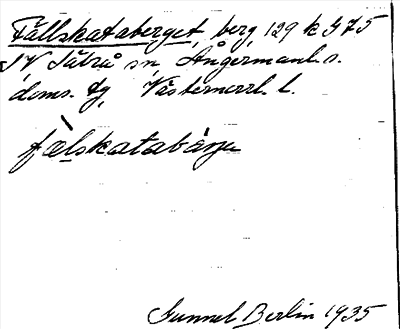 Fällskataberget, berg, 129 k S 75
SV Sätrå sn, Ångermanl. s.
doms. tg, Västernorrl. l.
fælskatabärje
Gunnel Berlin 1935